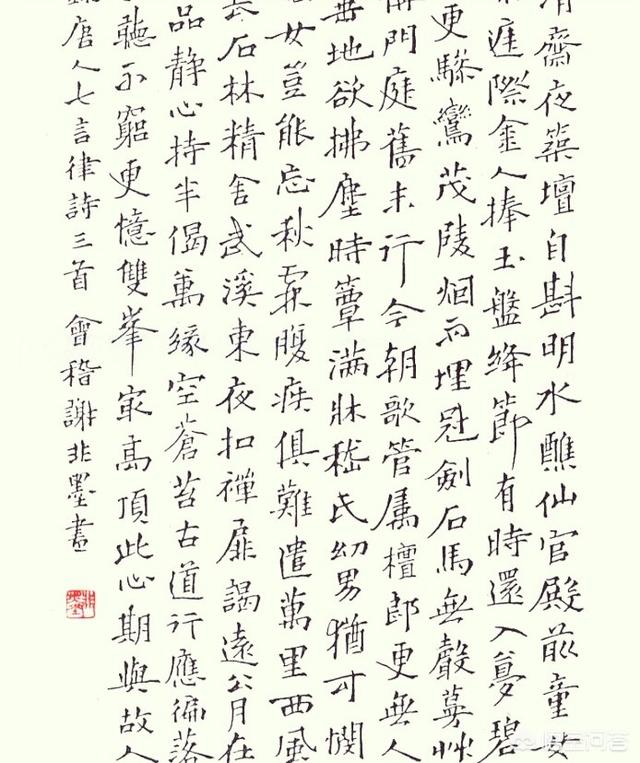 清齋夜築壇自斟明水醮仙官殿前童女
際金人捧玉盤絳節有時還入夢碧
更驂鸞茂陵烟雨埋冠劍石馬無聲蔓艸
門庭舊末行今朝歌管屬檀郎更無人
垂地欲拂塵時簟滿牀嵇氏幼男猶可憫
女豈能忘秋霖腹疾俱難遣萬里西風
長石林精舍武溪東夜扣禪扉謁遠公月在
品靜心持半偈萬緣空蒼苔古道行應徧落
聽不窮更憶雙峯最高頂此心期與故人
唐人七言律詩三首 會稽謝非墨書
悟空问答